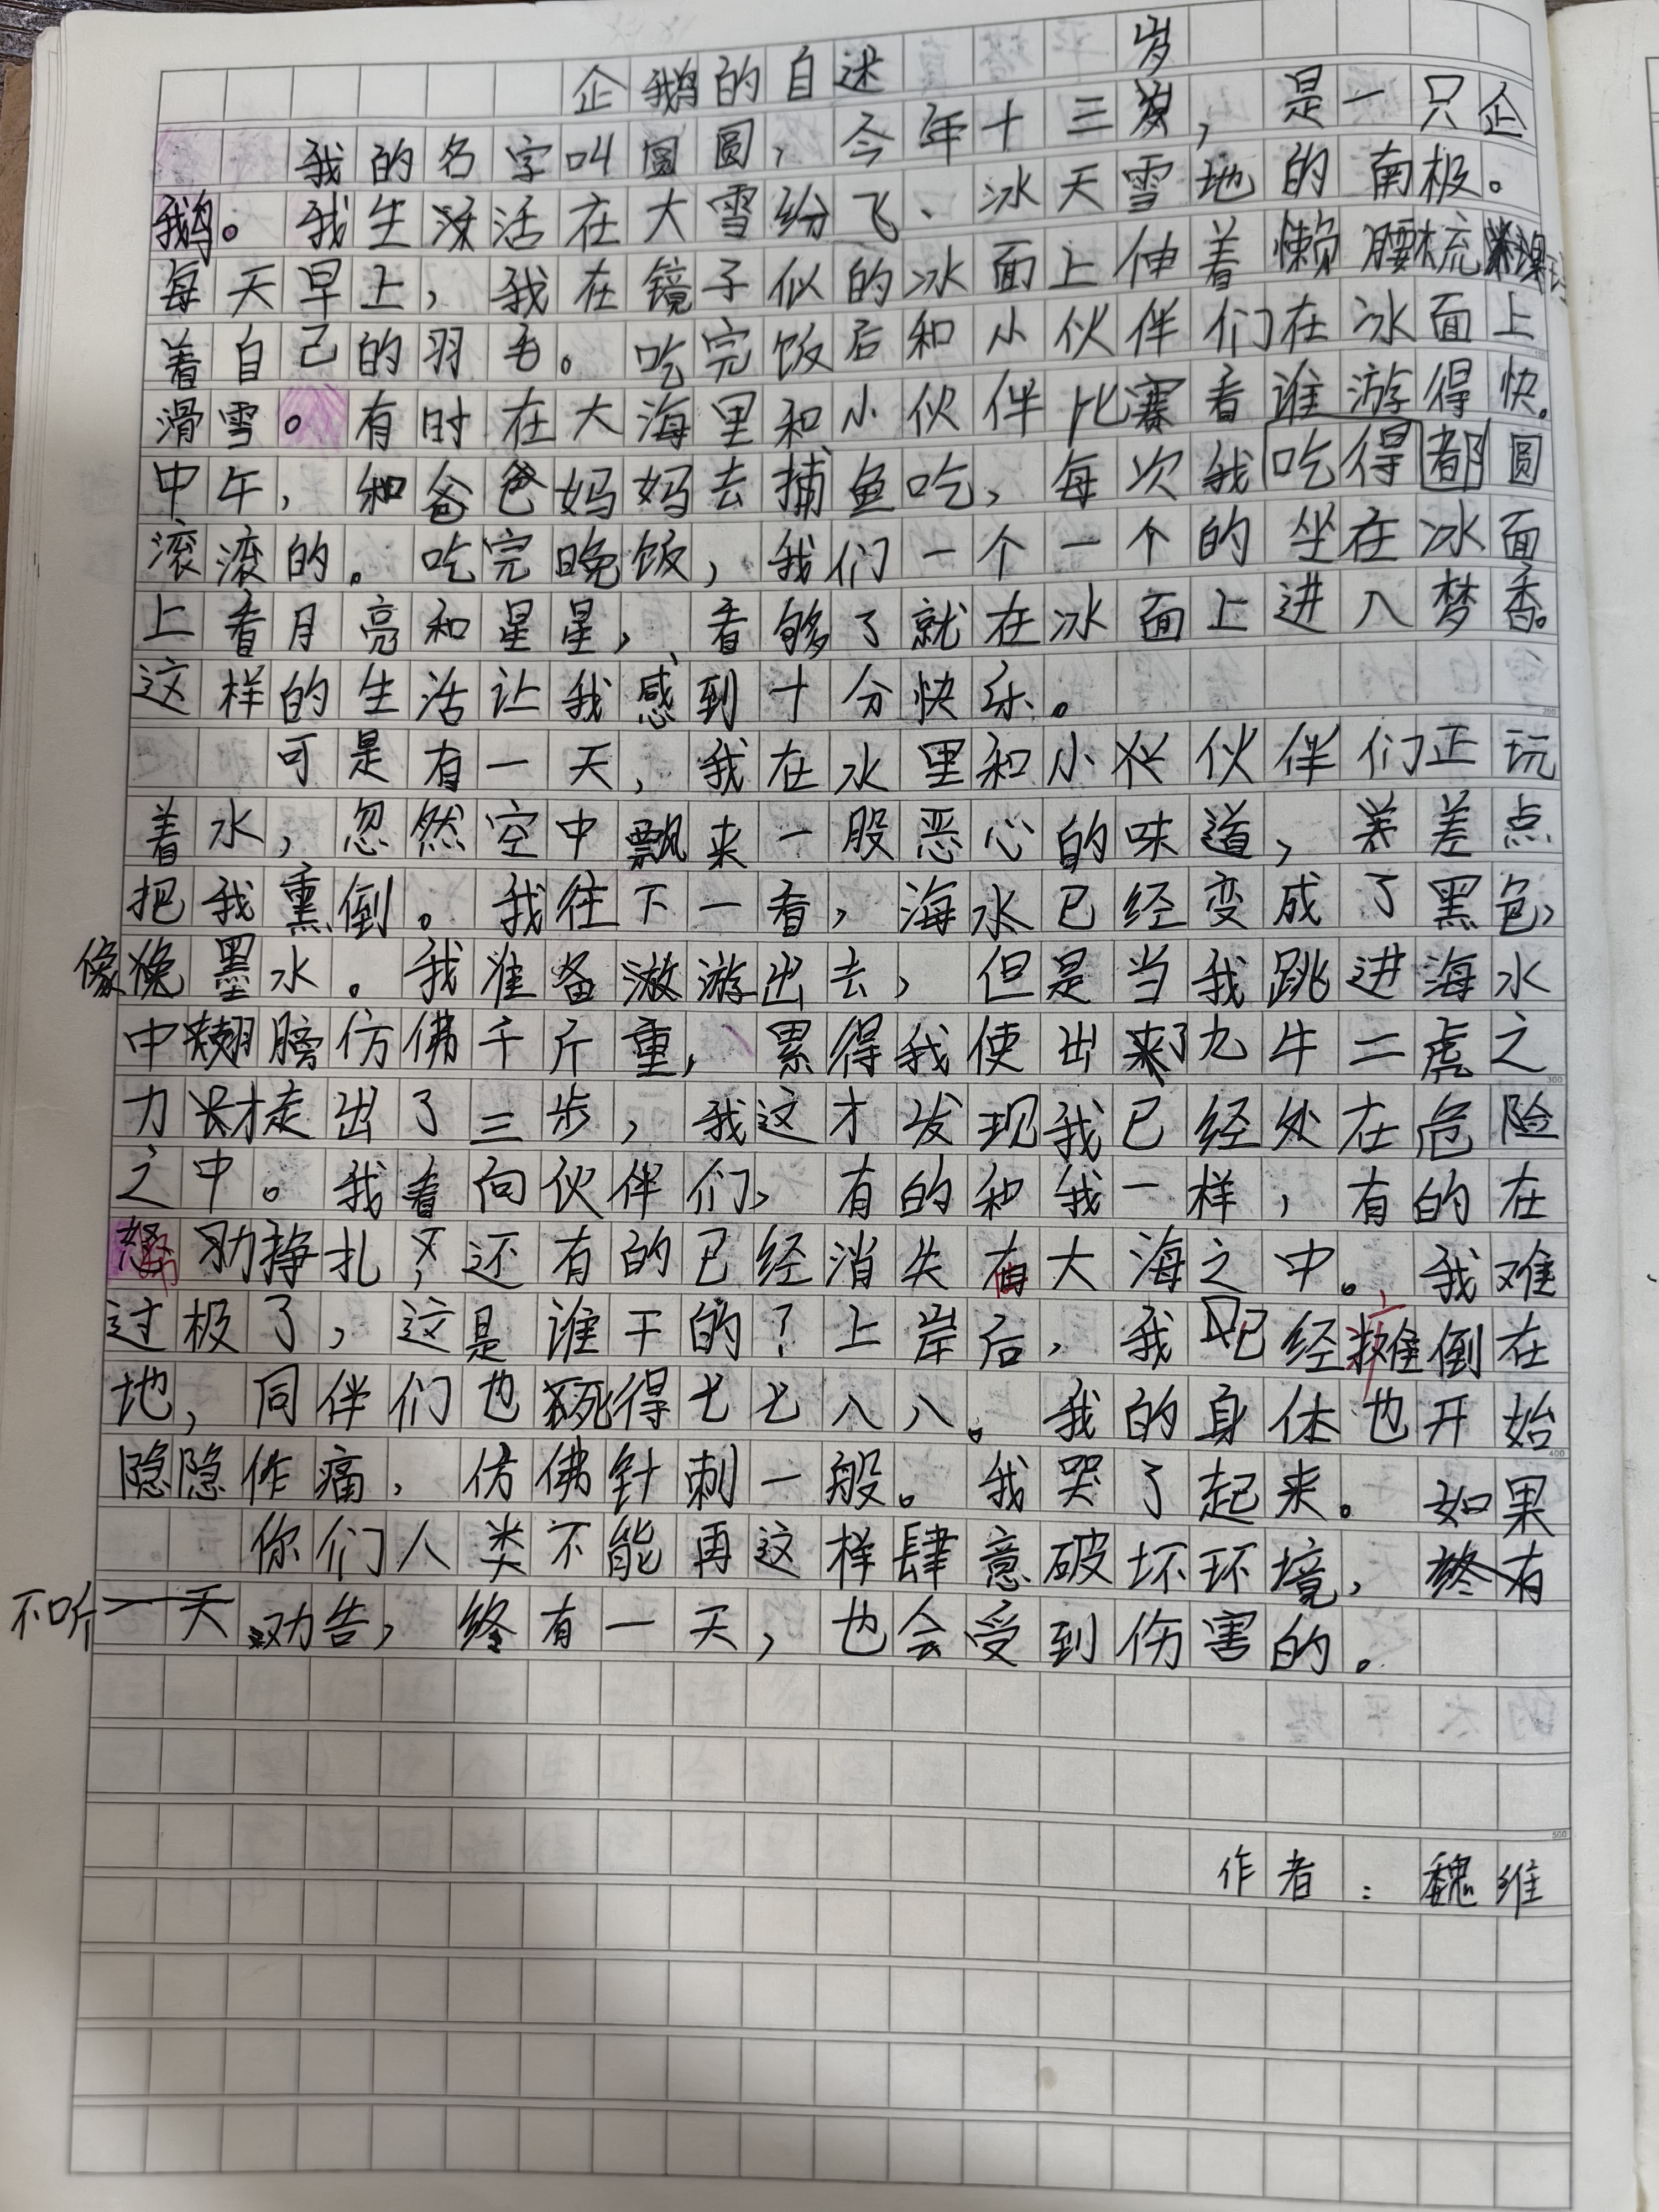 企鹅的自述
我的名字叫圆圆，今年十三岁，是一只企
鹅。我生活在大雪纷飞、冰天雪地的南极。
每天早上，我在镜子似的冰面上伸着懒腰梳理
着自己的羽毛。吃完饭后和小伙伴们在冰面上
滑雪。有时在大海里和小伙伴比赛看谁游得快。
中午，和爸爸妈妈去捕鱼吃，每次我吃得都圆
滚滚的。吃完晚饭，我们一个一个的坐在冰面
上看月亮和星星，看够了就在冰面上进入梦香。
这样的生活让我感到十分快乐。
可是有一天，我在水里和小伙伴们正玩
着水，忽然空中飘来一股恶心的味道，差点
把我熏倒。我往下一看，海水已经变成了黑色，
像墨水。我准备游出去，但是当我跳进海水
中翅膀仿佛千斤重，累得我使出了九牛二虎之
力才走出了三步，我这才发现我已经处在危险
之中。我看向伙伴们，有的和我一样，有的在
努力挣扎，还有的已经消失在大海之中。我难
过极了，这是谁干的？上岸后，我已经瘫倒在
地，同伴们也死得七七八八。我的身体也开始
隐隐作痛，仿佛针刺一般。我哭了起来。如果
你们人类不能再这样肆意破坏环境，
不听劝告，终有一天，也会受到伤害的。
作者：魏维